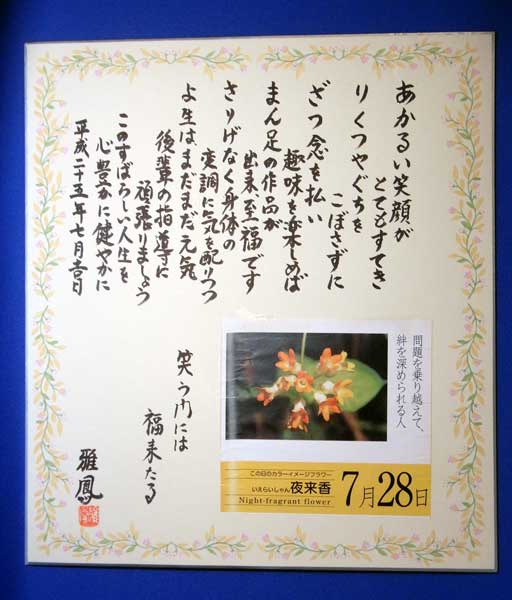 あかるい笑顔が
とてもすてき
りくつやぐちを
こぼさずに
ざつ念を払い
趣味を楽しめば
まん足の作品が
出来至福です
さりげなく身体の
変調に気を配りつつ
よ生はまだまだ元気
後輩の指導に
頑張りましょう
このすばらしい人生を
心豊かに健やかに
平成二十五年七月吉日
笑う門には
福来たる
雅鳳
問題を乗り越えて、
絆を深められる人
この日のカラーイメージフラワー
いえらいしゃん 夜来香
Night-fragrant flower
7月28日